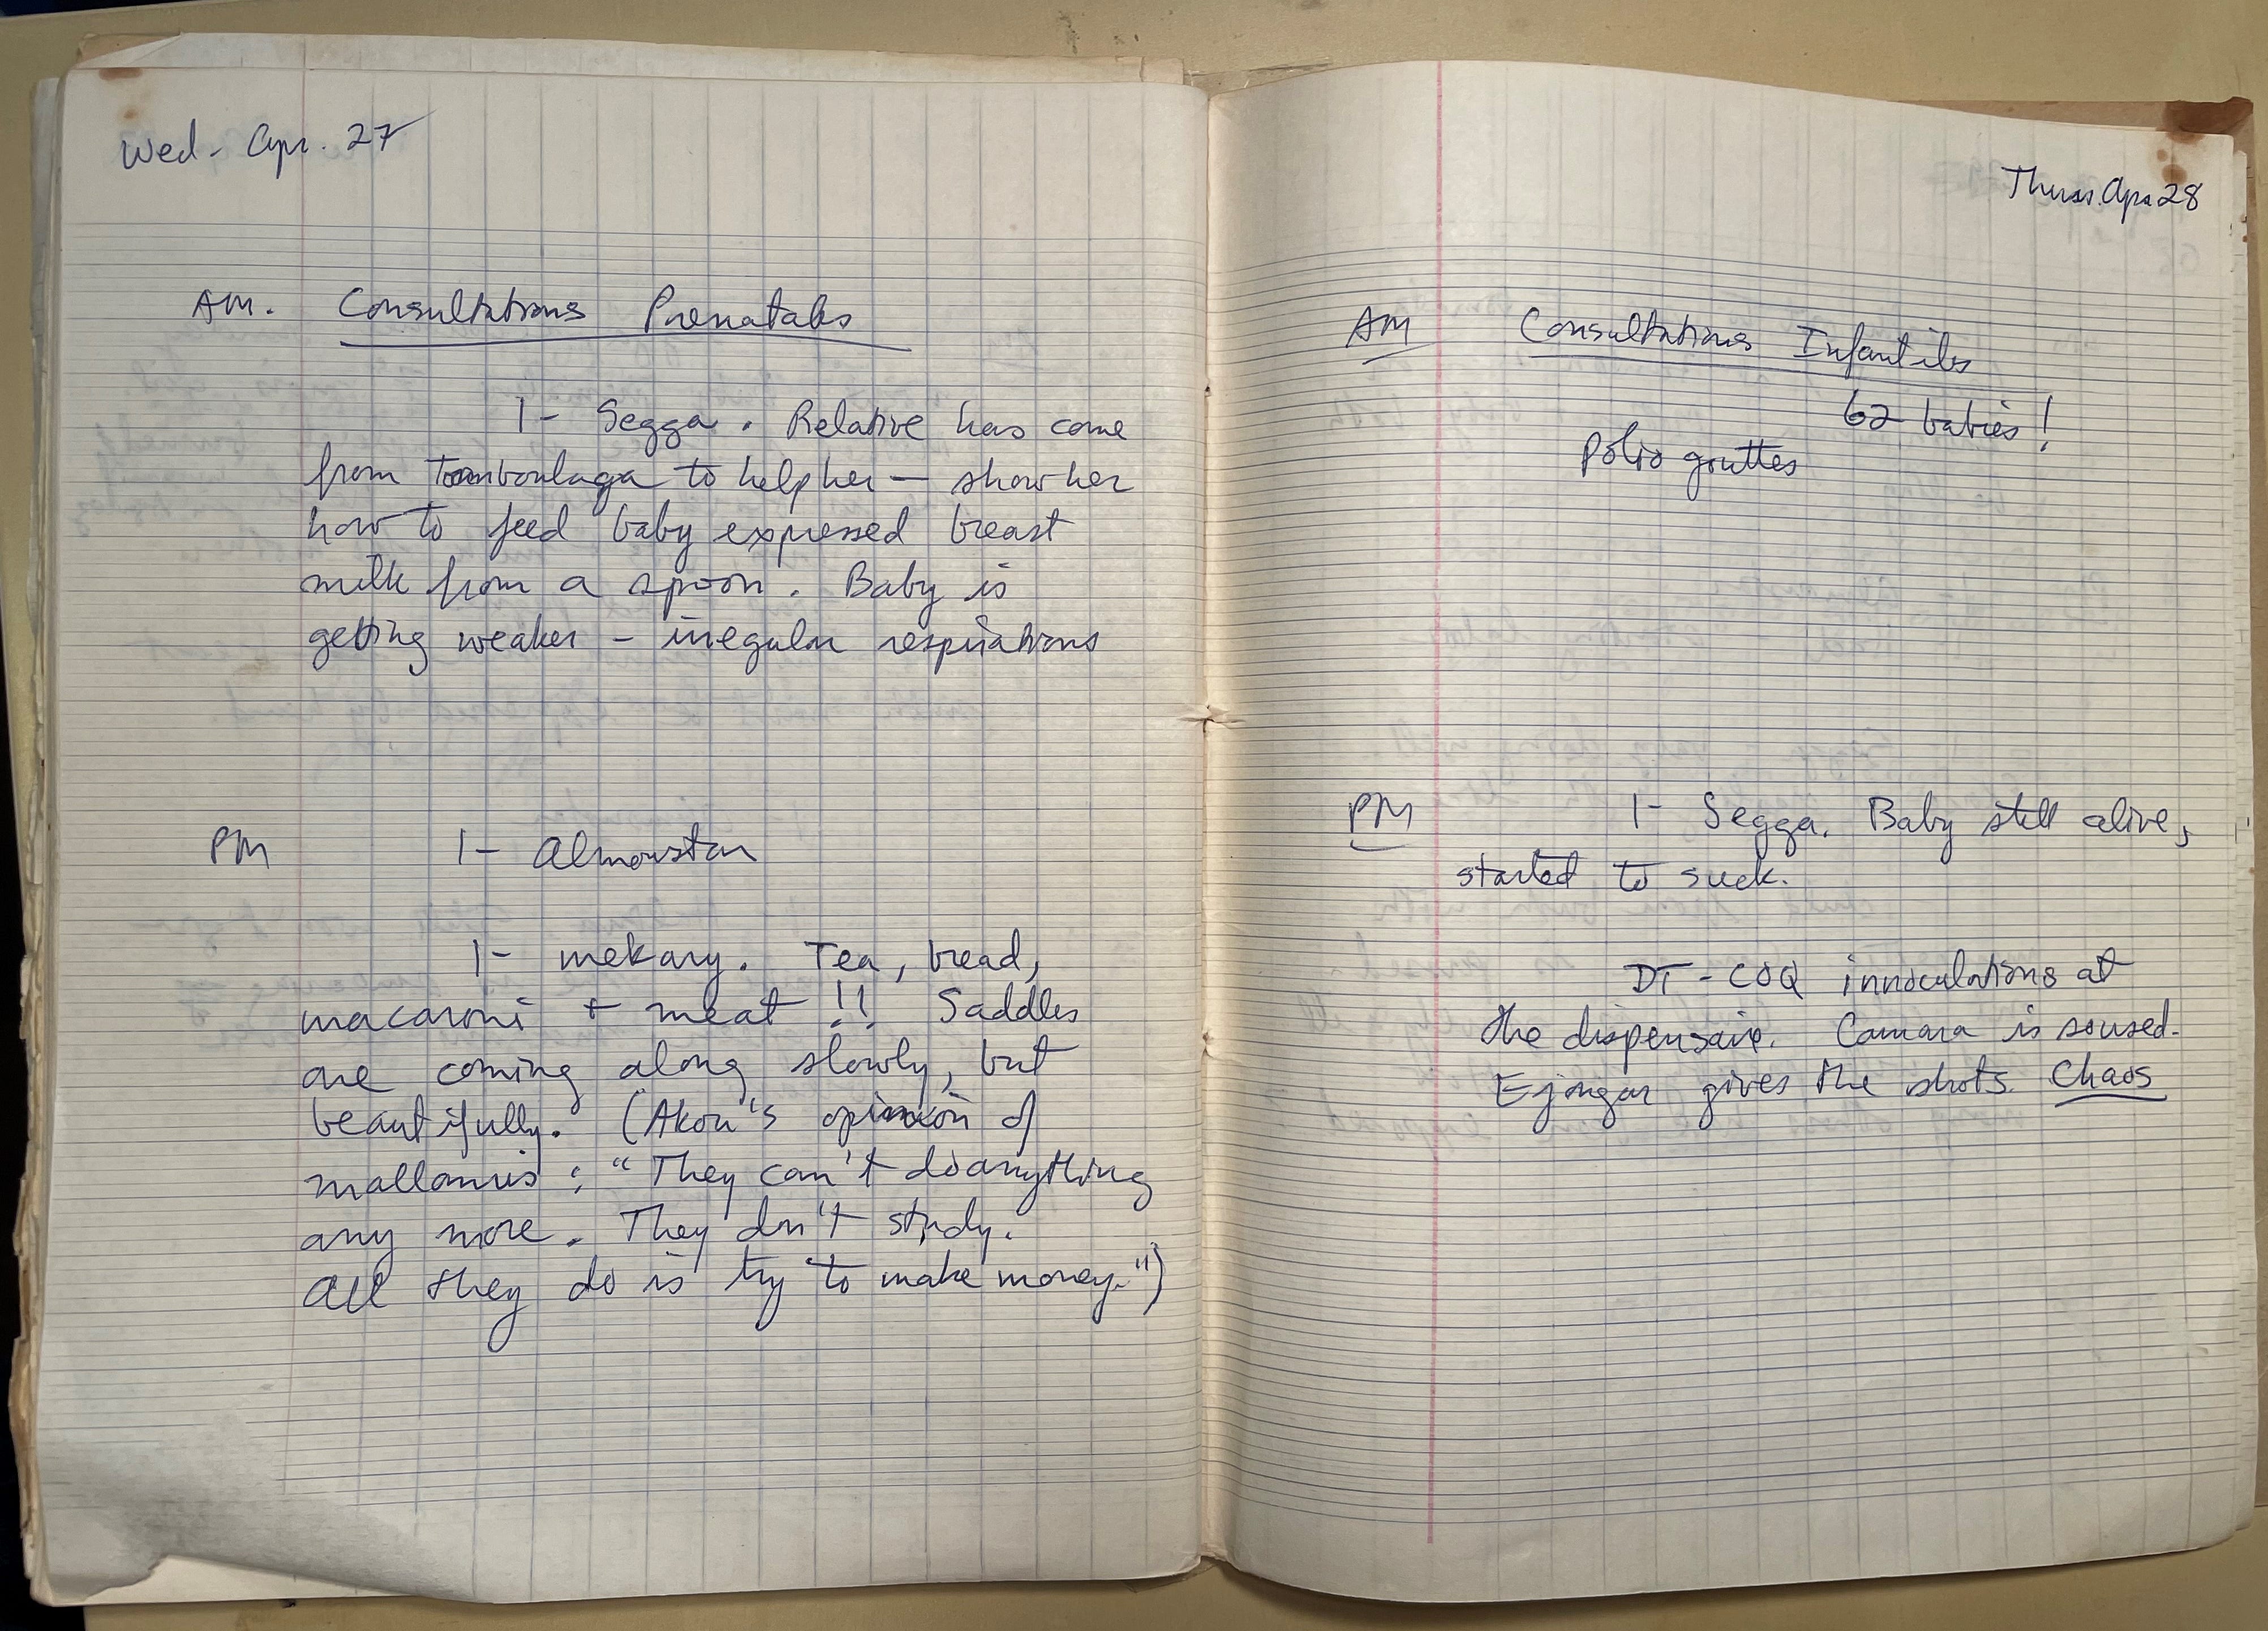 Wed - Apr. 27
AM. Consultations Prenatales
1- Segga. Relative has come
from Tamboulaga to help her — show her
how to feed baby expressed breast
milk from a spoon. Baby is
getting weaker - irregular respirations
PM 1- Almoustan
1- Mekary. Tea, bread,
macaroni + meat !! Saddles
are coming along slowly, but
beautifully. (Akou's opinion of
mallamis: "They can't do anything
any more. They don't study.
All they do is try to make money.")
Thurs. Apr 28
AM Consultations Infantiles
62 babies!
Polio gouttes
PM 1- Segga. Baby still alive,
started to suck.
DT-COQ innoculations at
the dispensaire. Camara is soused.
Ejongar gives the shots. Chaos